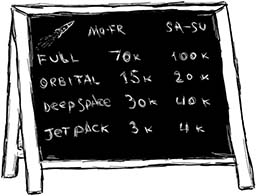 MO-FR SA-SU
FULL 70K 100K
ORBITAL 15K 20K
DEEP SPACE 30K 40K
JET PACK 3K 4K